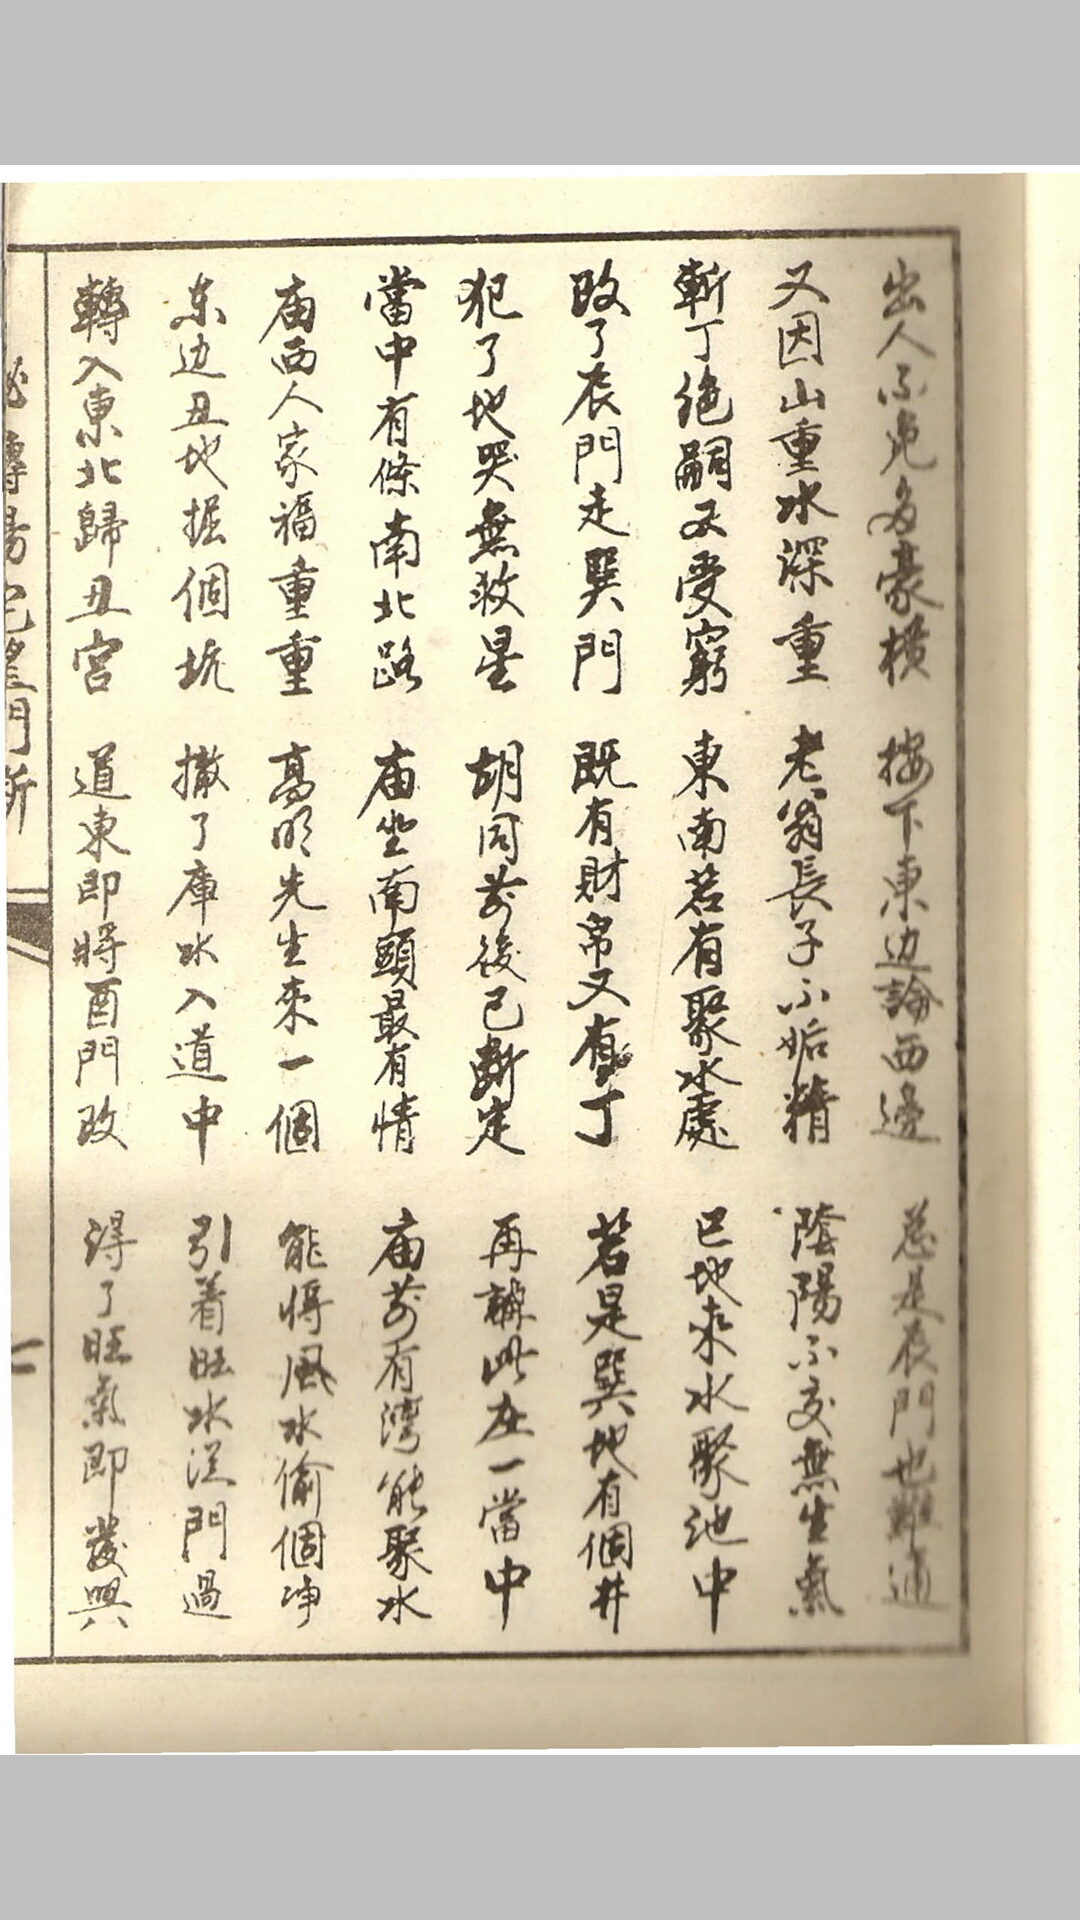 出人不免多豪橫 按下東边論西邊 总是辰門也難通
又因山重水深重 老翁長子不姤精 陰陽不交無生氣
斬丁绝嗣又受窮 東南若有聚水處 巳地来水聚池中
改了辰門走巽門 既有財帛又有丁 若是巽地有個井
犯了地哭無救星 胡同前後已斷定 再講此在一當中
當中有條南北路 庙坐南頭最有情 庙前有湾能聚水
庙西人家福重重 高明先生來一個 能将風水偷個净
东边丑地掘個坑 撤了庫水入道中 引着旺水従門過
轉入東北歸丑宫 道東即將酉門改 得了旺氣即發興